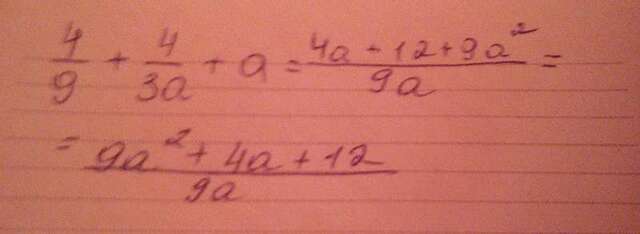 4/9 + 4/3a + a = (4a + 12 + 9a²)/9a =
= (9a² + 4a + 12)/9a